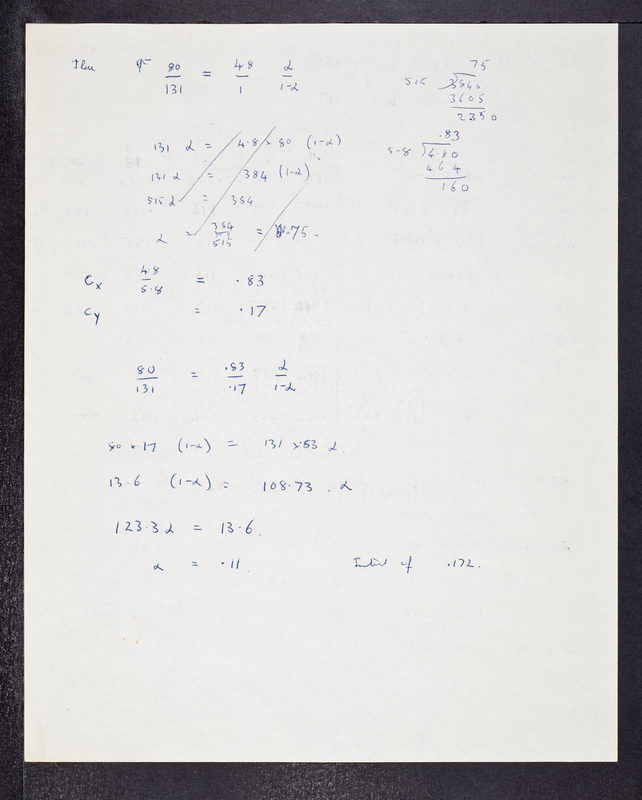 Then 80/131 = 48/1 α/1-α
131 α = 4.8 x 80 (1-α)
131 α = 384 (1-α)
515 α = 384
α = 384/515 = .75.
75
515 )3840
3605
2350
.83
5-8 )4.80
4 6 4
160
Cx 4.8/5.8 = .83
Cy = .17
80/131 = .83/.17 α/1-α
80 x .17 (1-α) = 131 x .83 α.
13.6 (1-α) = 108.73 . α
123.3 α = 13.6.
α = .11.
Instead of .172.